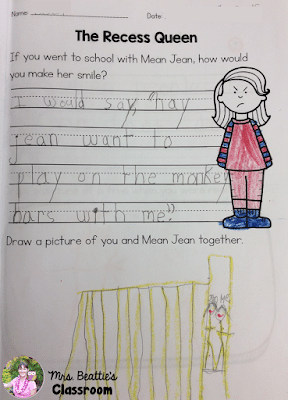 Name: Date:
The Recess Queen
If you went to school with Mean Jean, how would
you make her smile?
I would say, "hay
jean want to
play on the monkey
bars with me?"
Draw a picture of you and Mean Jean together.
Mrs. Beattie's
Classroom